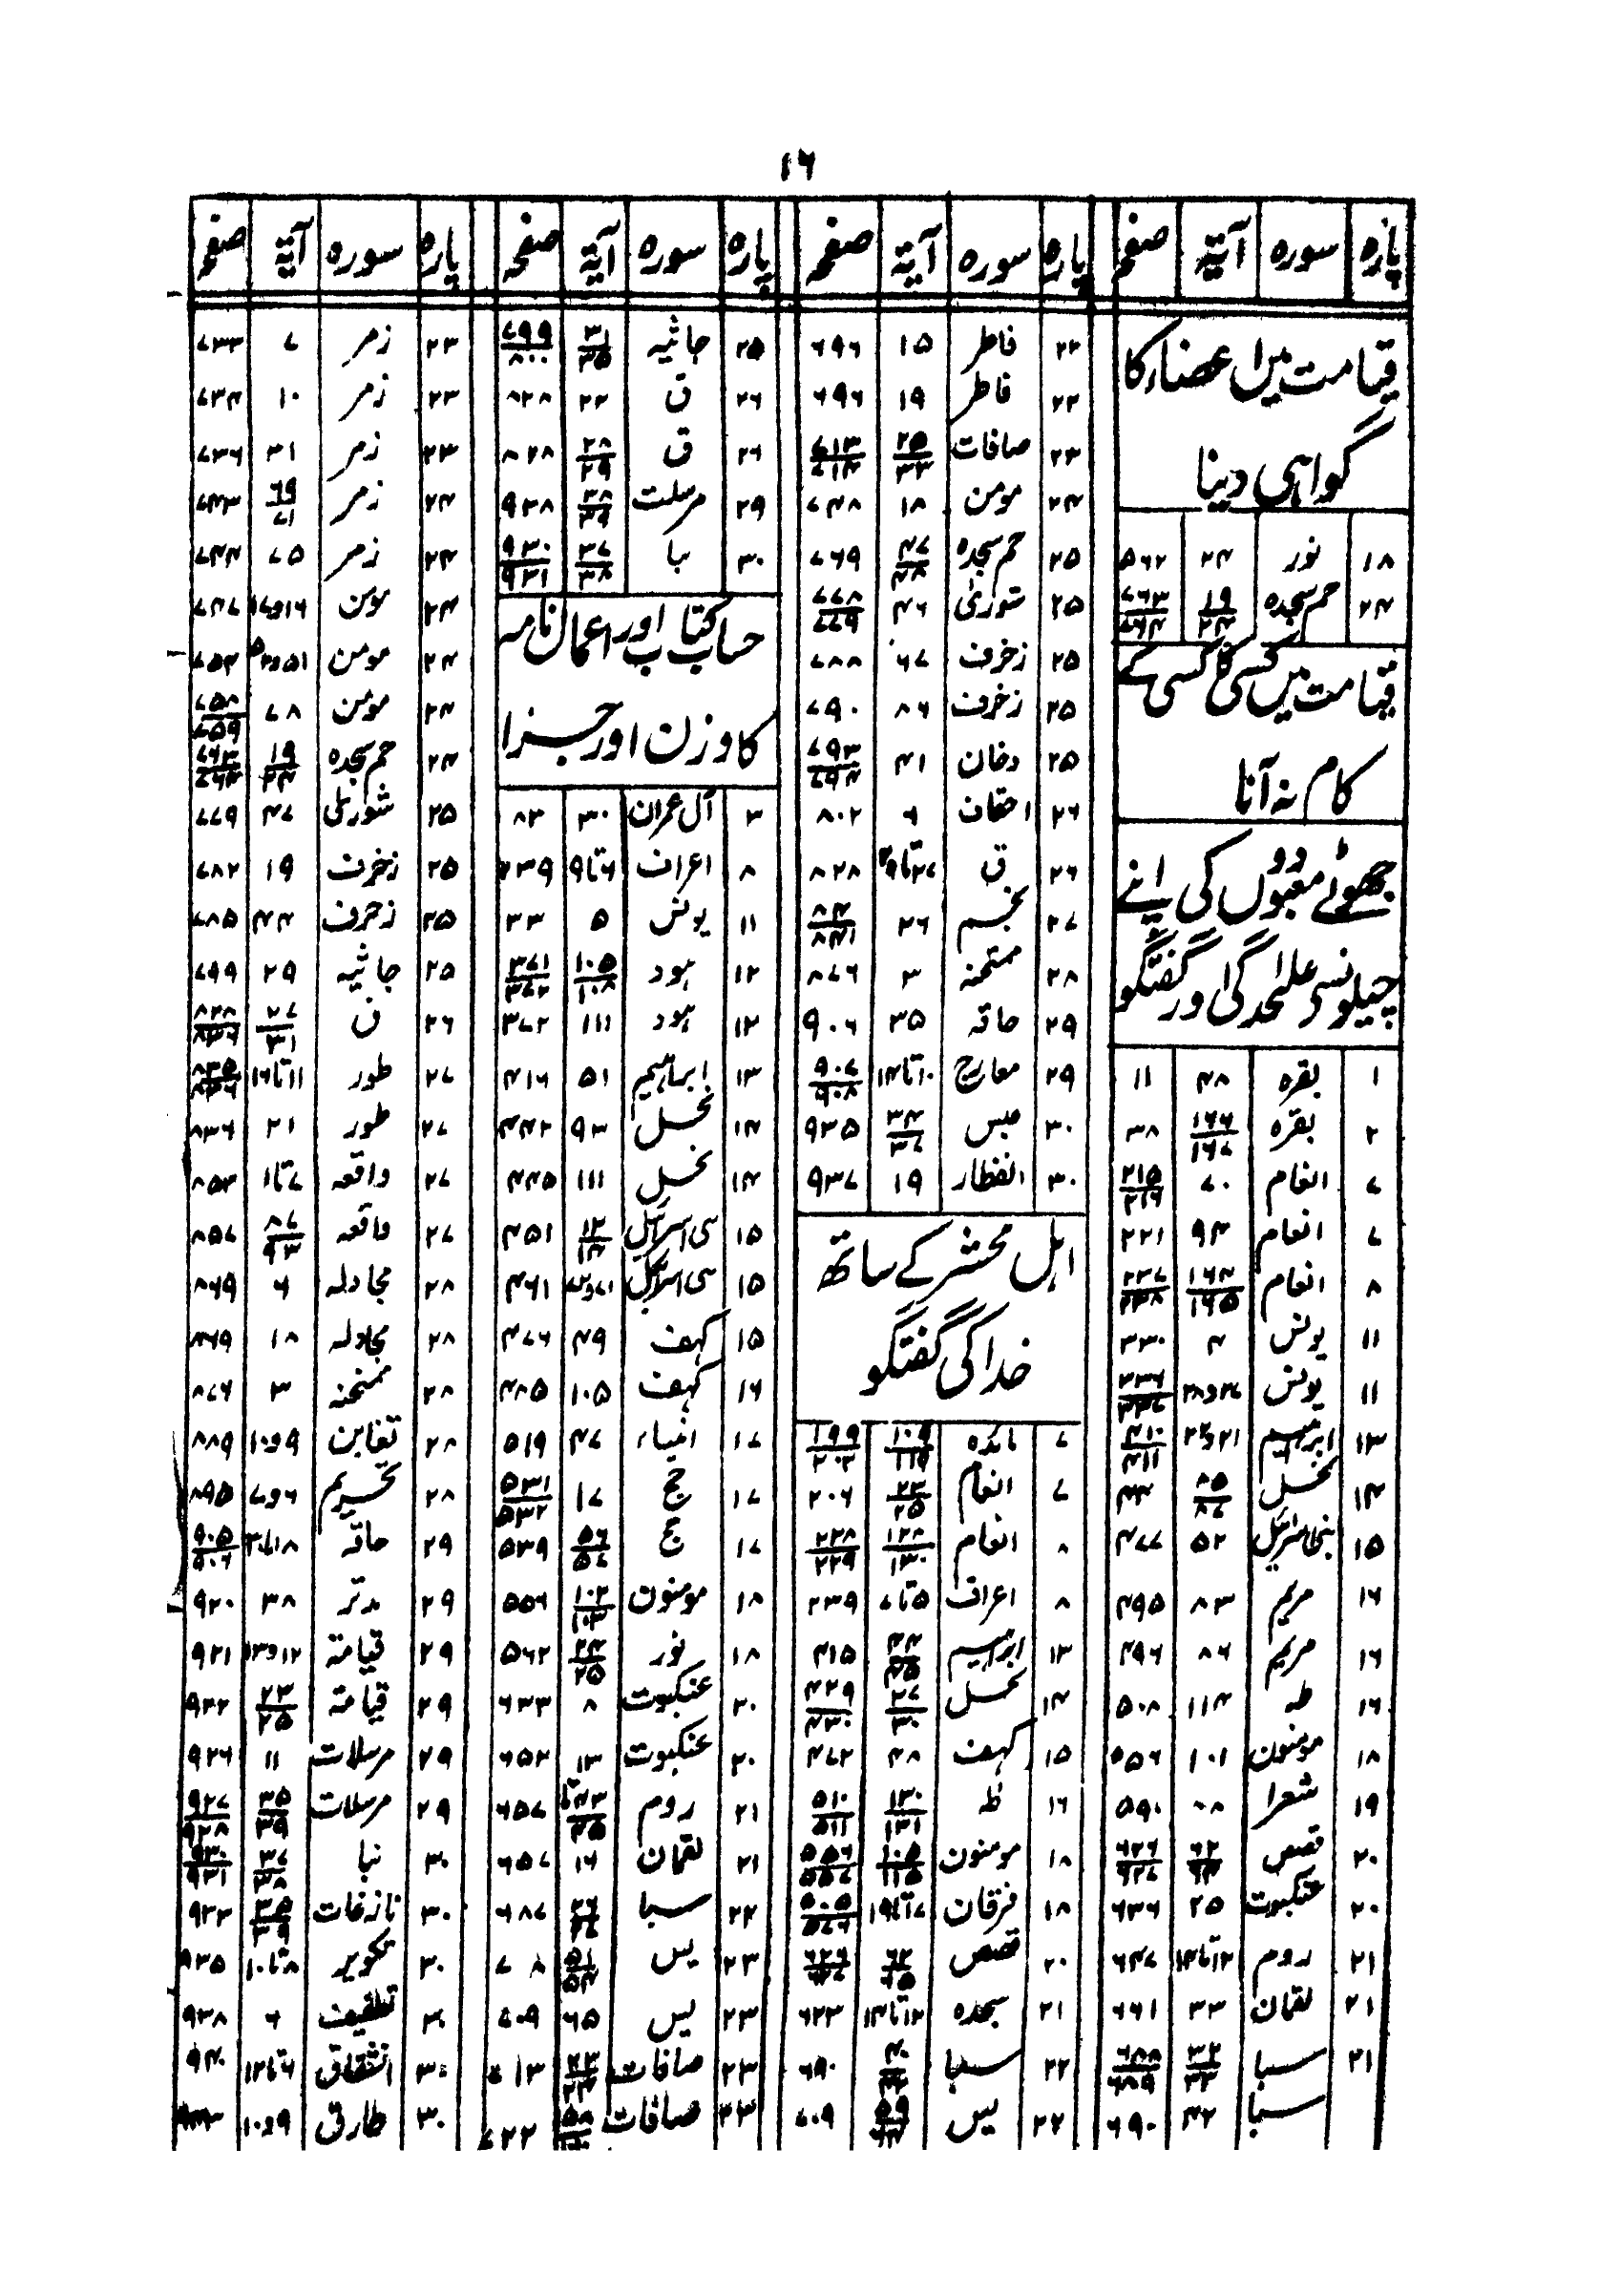 ۱۶
پارہ سورہ آیۃ صفحہ
قیامت میں اعضاء کا
گواہی دینا
۱۸ نور ۲۴ ۵۶۲
۲۴ حم سجدہ ۱۹/۲۴ ۷۶۳/۷۶۴
قیامت میں کسی کا کسی کے
کام نہ آنا
جھوٹے معبودوں کی اپنے
چیلوں سے علٰحدگی اور گفتگو
۱ بقرہ ۴۸ ۱۱
۲ بقرہ ۱۶۶/۱۶۷ ۳۸
۷ انعام ۷۰ ۲۱۵/۲۱۶
۷ انعام ۹۴ ۲۲۱
۸ انعام ۱۶۴/۱۶۵ ۲۳۷/۲۳۸
۱۱ یونس ۴ ۳۳۰
۱۱ یونس ۲۷و۲۸ ۳۳۶/۳۳۷
۱۳ ابراہیم ۲۱و۲۲ ۴۱۰/۴۱۱
۱۴ نحل ۸۵/۸۶
۱۵ بنی اسرائیل ۵۲ ۴۷۷
۱۶ مریم ۸۳ ۴۹۵
۱۶ مریم ۸۶ ۴۹۶
۱۶ طہ ۱۱۴ ۵۰۸
۱۸ مومنون ۱۰۱ ۵۵۶
۱۹ شعرا ۸۸ ۵۹۰
۲۰ قصص ۶۲/۶۴ ۶۲۶/۶۲۷
۲۰ عنکبوت ۲۵ ۶۳۶
۲۱ روم ۱۲تا۱۴ ۶۴۷
۲۱ لقمان ۳۳ ۶۶۱
۲۱ سبا ۳۲/۳۳ ۶۸۸/۶۸۹
سبا ۴۲ ۶۹۰
پارہ سورہ آیۃ صفحہ
۲۲ فاطر ۱۵ ۶۹۶
۲۲ فاطر ۱۹ ۶۹۶
۲۳ صافات ۲۵/۳۳ ۷۱۳/۷۱۴
۲۴ مومن ۱۸ ۷۴۸
۲۵ حم سجدہ ۴۷/۴۸ ۷۶۹
۲۵ شوریٰ ۴۶ ۷۷۸/۷۷۹
۲۵ زخرف ۶۷ ۷۸۸
۲۵ زخرف ۸۶ ۷۹۰
۲۵ دخان ۴۱ ۷۹۳/۷۹۴
۲۶ احقاف ۶ ۸۰۲
۲۶ ق ۲۷تا۲۹ ۸۲۸
۲۷ نجم ۲۶ ۸۴۰/۸۴۱
۲۸ ممتحنہ ۳ ۸۷۶
۲۹ حاقہ ۳۵ ۹۰۶
۲۹ معارج ۱۰تا۱۴ ۹۰۷/۹۰۸
۳۰ عبس ۳۴/۳۷ ۹۳۵
۳۰ انفطار ۱۹ ۹۳۷
اہل محشر کے ساتھ
خدا کی گفتگو
۷ مائدہ ۱۰۹/۱۱۹ ۱۹۹/۲۰۲
۷ انعام ۲۲/۲۵ ۲۰۶
۸ انعام ۱۲۸/۱۳۰ ۲۲۸/۲۲۹
۸ اعراف ۵تا۷ ۲۳۹
۱۳ ابراہیم ۴۴/۴۵ ۴۱۵
۱۴ نحل ۲۷/۳۰ ۴۲۹/۴۳۰
۱۵ کہف ۴۸ ۴۷۲
۱۶ طہ ۱۳۰/۱۳۱ ۵۱۰/۵۱۱
۱۸ مومنون ۱۰۵/۱۱۵ ۵۵۶/۵۵۷
۱۸ فرقان ۱۷تا۱۹
۲۰ قصص ۶۲/۶۵ ۶۲۶/۶۲۷
۲۱ سجدہ ۱۲تا۱۴ ۶۲۳
۲۲ سبا ۴۰/۴۲ ۶۹۰
۲۲ یس ۵۹/۶۴ ۷۰۹
پارہ سورہ آیۃ صفحہ
۲۵ جاثیہ ۳۱/۳۵ ۷۹۹/۸۰۰
۲۶ ق ۲۲ ۸۲۸
۲۶ ق ۲۸/۲۹ ۸۲۸
۲۹ مرسلت ۳۸/۳۹ ۹۲۸
۳۰ نبا ۳۷/۳۸ ۹۳۰/۹۳۱
حساب کتاب اور اعمال نامہ
کا وزن اور جزا
۳ آل عمران ۳۰ ۸۳
۸ اعراف ۶تا۹ ۲۳۹
۱۱ یونس ۵ ۳۳
۱۲ ہود ۱۰۵/۱۰۸ ۳۷۱/۳۷۲
۱۲ ہود ۱۱۱ ۳۷۲
۱۳ ابراہیم ۵۱ ۴۱۶
۱۴ نحل ۹۳ ۴۴۲
۱۴ نحل ۱۱۱ ۴۴۵
۱۵ بنی اسرائیل ۱۳/۱۴ ۴۵۱
۱۵ بنی اسرائیل ۷۱و۷۲ ۴۶۱
۱۵ کہف ۴۹ ۴۷۶
۱۶ کہف ۱۰۵ ۴۸۵
۱۷ انبیاء ۴۷ ۵۱۹
۱۷ حج ۱۷ ۵۳۱/۵۳۲
۱۷ حج ۵۶/۵۷ ۵۳۹
۱۸ مومنون ۱۰۲/۱۰۳ ۵۵۶
۱۸ نور ۲۴/۲۵ ۵۶۲
۲۰ عنکبوت ۸ ۶۳۳
۲۰ عنکبوت ۱۳ ۶۵۲
۲۱ روم ۴۳تا۴۵ ۶۵۷
۲۱ لقمان ۱۶ ۶۵۷
۲۲ سبا ۲۶ ۶۸۷
۲۳ یس ۵۱/۵۴ ۷۰۸
۲۳ یس ۶۵ ۷۰۹
۲۳ صافات ۲۲/۲۴ ۷۱۳
۲۳ صافات ۷۲۲
پارہ سورہ آیۃ صفحہ
۲۳ زمر ۷ ۷۳۳
۲۳ زمر ۱۰ ۷۳۴
۲۳ زمر ۳۱ ۷۳۶
۲۴ زمر ۶۹/۷۱ ۷۴۳
۲۴ زمر ۷۵ ۷۴۴
۲۴ مومن ۱۶و۱۷ ۷۴۷
۲۴ مومن ۵۱و۵۲ ۷۵۴
۲۴ مومن ۷۸ ۷۵۸/۷۵۹
۲۴ حم سجدہ ۱۹/۲۴ ۷۶۳/۷۶۴
۲۵ شوریٰ ۴۷ ۷۷۹
۲۵ زخرف ۱۹ ۷۸۲
۲۵ زخرف ۴۴ ۷۸۵
۲۵ جاثیہ ۲۹ ۷۹۹
۲۶ ق ۲۷/۳۱
۲۷ طور ۱۱تا۱۶ ۸۳۵/۸۳۶
۲۷ طور ۲۱ ۸۳۶
۲۷ واقعہ ۷تا۱ ۸۵۴
۲۷ واقعہ ۸۷/۹۳ ۸۵۷
۲۸ مجادلہ ۶ ۸۶۹
۲۸ مجادلہ ۱۸ ۸۶۹
۲۸ ممتحنہ ۳ ۸۷۶
۲۸ تغابن ۹و۱۰ ۸۸۹
۲۸ تحریم ۶و۷ ۸۹۵
۲۹ حاقہ ۱۸تا۳۷ ۹۰۵/۹۰۶
۲۹ مدثر ۳۸ ۹۲۰
۲۹ قیامۃ ۱۲و۱۳ ۹۲۱
۲۹ قیامۃ ۲۳/۲۵ ۹۲۲
۲۹ مرسلات ۱۱ ۹۲۶
۲۹ مرسلات ۳۵/۳۹ ۹۲۷/۹۲۸
۳۰ نبا ۳۷/۳۸ ۹۳۰/۹۳۱
۳۰ نازعات ۳۵/۳۹ ۹۳۳
۳۰ تکویر ۸تا۱۰ ۹۳۵
۳۰ تطفیف ۶ ۹۳۸
۳۰ انشقاق ۶تا۱۲ ۹۴۰
۳۰ طارق ۹و۱۰